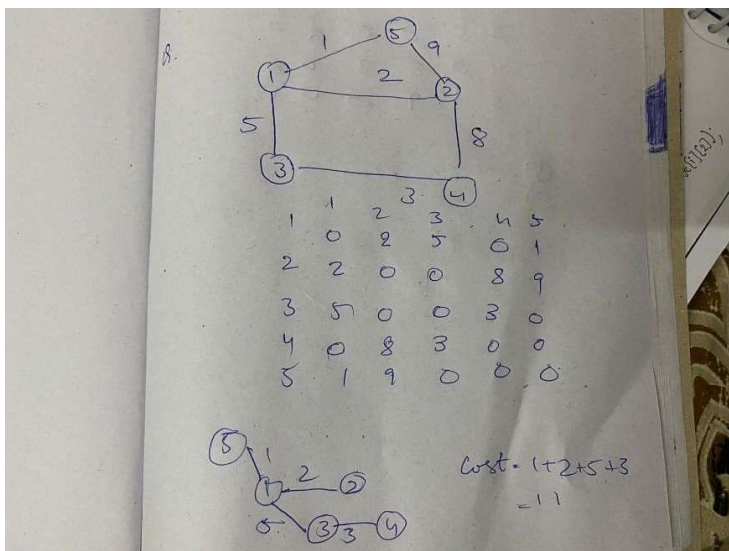 8.
1 5 9
1 2 2
5 8
3 3 4
1 2 3 4 5
1 0 2 5 0 1
2 2 0 0 8 9
3 5 0 0 3 0
4 0 8 3 0 0
5 1 9 0 0 0
5 1
1 2 2
5 3 3 4
Cost = 1+2+5+3
= 11